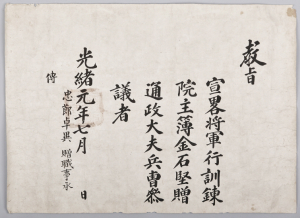 敎旨
宣畧將軍行訓鍊
院主簿金石堅贈
通政大夫兵曹叅
議者
光緒元年七月 日
忠節卓異 贈職事承
傳